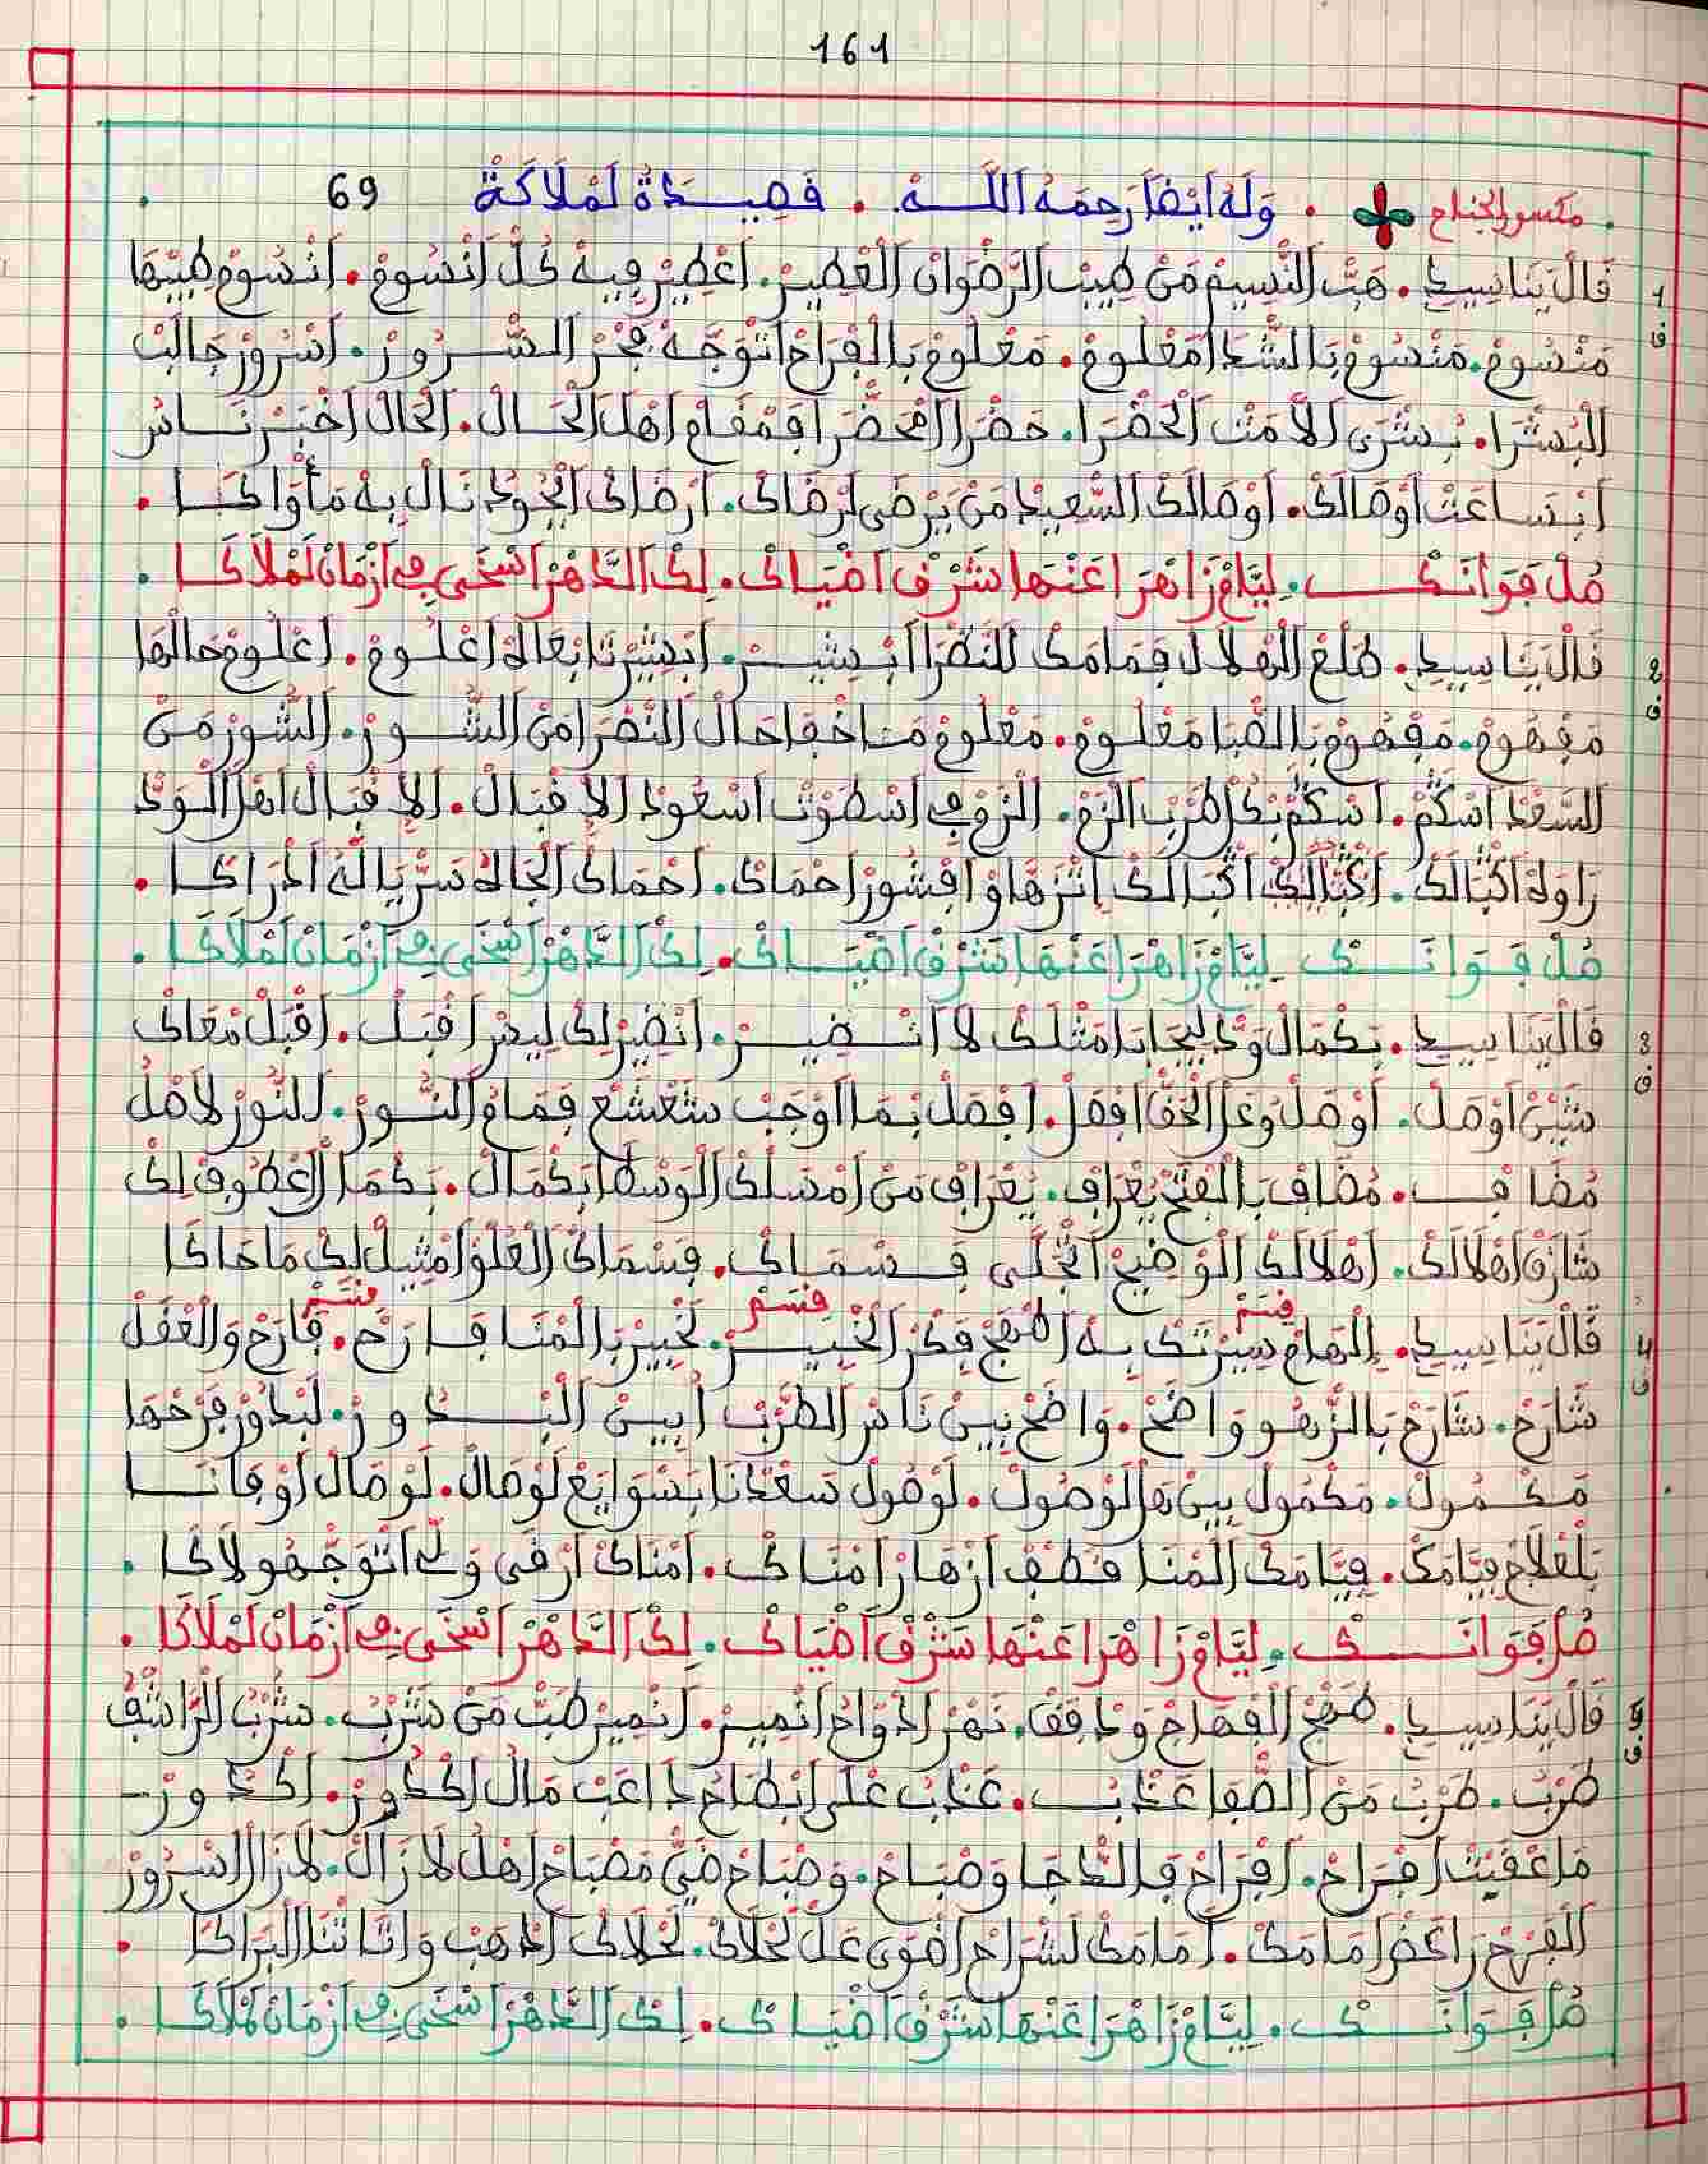 161
مكسور الجناح . وَلَهُ أَيْضاً رَحِمَهُ اللَّـه . قَصِيـدَةْ لَمْلَاكَةْ 69
1 قَالْ يَنَاسِيدِي . هَبّْ النّْسِيمْ مَنْ طِيبْ الرَّضْوَانْ الْعْطِيرْ . اعْطِيرْ فِيهْ كُلّْ انْسُومْ . انْسُومْ طِيبْهَا
ف مَنْسُومْ . مَنْسُومْ بَالشّْدَا مَعْلُومْ . مَعْلُومْ بِالْفْرَاحْ اتْوَجَّهْ فَجْرْ السّْـرُورْ . اسْرُورْ جَالَبْ
الْبُشْرَا . بُشْرَى الْأَمَنْ الْحَضْرَا . حَضْرَا الْمَحْضْرَا فَمْقَامْ اهْلْ الْحَـالْ . الْحَالْ اخْبَرْ نَـاسْ
ابْسَاعَتْ اوْصَالَكْ . اوْصَالَكْ السّْعِيدْ مَنْ يَرْضَى لَرْضَاكْ . ارْضَاكْ الْجُودْ نَالْ بِهْ مَأْوَاكَـا .
صُلْ فَوَانَـكْ . لِيَّامْ زَاهْرَا عَنْهَا شَرْقْ اضْيَاكْ . لِكْ الدَّاهْرْ اسْخَى فِي ازْمَانْ لَمْلَاكَـا .
2 قَالْ يَنَاسِيدِي . طْلَعْ الْهْلَالْ فَمَامَكْ لَلنَّضْرَا ابْـشِيـرْ . ابْشِيرْنَا بْعَالَهْ اعْلُـومْ . اعْلُومْ حَالْهَا
ف مَفْهُومْ . مَفْهُومْ بَالضّْيَا مَعْلُـومْ . مَعْلُومْ مَا خْفَا حَالْ النَّضْرَا مَنْ الشُّـورْ . الشُّورْ مَنْ
السَّعْدْ اسْكَمْ . اسْكَمْ بَكْ طَرْبْ الزّْمْ . الْزَمْ فِي اسْطَوْتْ اسْعُودْ الَاقْبَالْ . الَاقْبَالْ اهْلْ الْوَدّْ
رَاوَدْ اكْبَالَكْ . اكْبَالَكْ اكْبَالَكْ انْزَهَاوْ افْشُورْ احْمَاكْ . احْمَاكْ الْجَاهْ سَرّْ يَا لَلّهْ ادْرَاكَـا .
صُلْ فَـوَانَـكْ لِيَّامْ زَاهْرَا عَنْهَا شَرْقْ اضْيَـاكْ . لِكْ الدَّاهْرْ اسْخَى فِي ازْمَانْ لَمْلَاكَـا .
3 قَالْ يَنَاسِيدِي . بَكْمَالْ وَدّْ لِيجَابَا مَثْلَكْ لَا انْـضِيـرْ . انْضِيرْ لِكْ لِيسْ اقْبَـلْ . اقْبَلْ مْعَاكْ
ف شَيْنْ اوْصَلْ . اوْصَلْ وْعَزْ الْحَقْ افْصَلْ . افْصَلْ بْمَا اوْجَبْ شَعْشَعْ فَمَامْ النُّـورْ . النُّورْ لَاصْلْ
مُضَافْ . مُضَافْ بَالْفَتْحْ يَعْرَافْ . يَعْرَافْ مَنْ امْسَلْكْ الْوَسْطَا بَكْمَالْ . بَكْمَالْ الْعْطُوفْ لِكْ
شَارَقْ اهْلَالَكْ . اهْلَالَكْ الْوْضِيحْ اتْجَلَّى فَـسْمَـاكْ . فَسْمَاكْ الْعْلُوْ امْثِيلْ لَكْ مَا حَاكَا
قسم قسم قسم
4 قَالْ يَنَاسِيدِي . الْهَامْ سِيرْتَكْ بِهْ اطْهَجْ فِكْرْ الْخْبِيـرْ . لَخْبِيرْ بَالْمْنَا فَـارَحْ . فَارَحْ وَالْعْقَلْ
ف شَارَحْ . شَارَحْ بَالزّْهُو وَاضَحْ . وَاضَحْ بِينْ نَاسْ الطَّرْبْ ابِينْ الْبْـدُورْ . لَبْدُورْ فَرْحْهَا
مَكْـمُولْ . مَكْمُولْ بِينْ هَلْ الْوْصُولْ . لَوْصُولْ سَعْدْنَا بَسْوَايَعْ لَوْصَالْ . لَوْصَالْ اوْفَانَـا
بَلْغْلَامْ فِيَّامَكْ . فِيَّامَكْ الْمْنَا قْطَفْ ازْهَارْ امْنَاكْ . امْنَاكْ ارْقَى وَلِّي اتْوَجّْهُو لَاكَـا .
صُلْ فَوَانَـكْ . لِيَّامْ زَاهْرَا عَنْهَا شَرْقْ اضْيَاكْ . لِكْ الدَّاهْرْ اسْخَى فِي ازْمَانْ لَمْلَاكَـا .
5 قَالْ يَنَاسِيدِي . طَهْجْ الْفْهَاجْ وَدَافَقْ . نَهْرْ ادْوَاحْ انْمِيرْ . انْمِيرْ طَبّْ مَنْ شَرْبْ . شَرْبْ الرَّاشَفْ
ف طَرْبْ . طَرْبْ مَنْ الصّْفَا عَذْبْ . عَذْبْ عْلَى ابْطَاحْ دَاعَبْ مَالْ اكْدُورْ . اكْـدُورْ
مَاعْقَبْتْ افْـرَاحْ . افْرَاحْ فَالدّْجَا وَصْبَاحْ . وَصْبَاحْ ضَيّْ مَصْبَاحْ اهْلْ لَازَالْ . لَازَالْ اسْرُورْ
الْفَرْحْ رَاعَضْ امَامَكْ . امَامَكْ لَشْرَاحْ اضْوَى عَلْ لَحْلَاكْ . لَحْلَاكْ ادْهَبْ وَاتَاتْنَا الْبَرَاكَـا .
صُلْ فَـوَانَـكْ . لِيَّامْ زَاهْرَا عَنْهَا شَرْقْ اضْيَـاكْ . لِكْ الدَّاهْرْ اسْخَى فِي ازْمَانْ لَمْلَاكَـا .